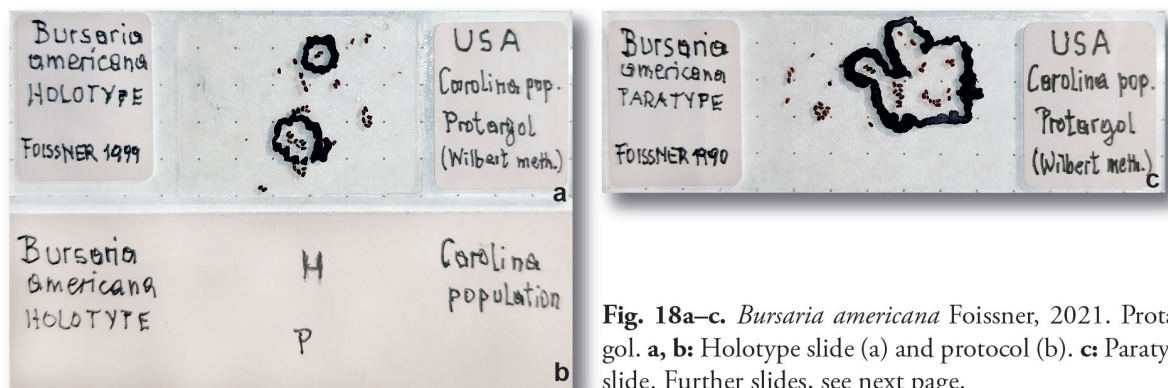 Bursaria
americana
HOLOTYPE
FOISSNER 1999
USA
Carolina pop.
Protargol
(Wilbert meth.)
a
Bursaria
americana
HOLOTYPE
H
P
Carolina
population
b
Bursaria
americana
PARATYPE
FOISSNER 1990
USA
Carolina pop.
Protargol
(Wilbert meth.)
c
Fig. 18a–c. Bursaria americana Foissner, 2021. Prota
gol. a, b: Holotype slide (a) and protocol (b). c: Paraty
slide. Further slides, see next page.